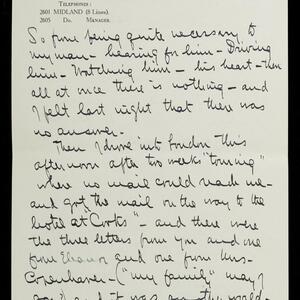 TELEPHONES:
2601 MIDLAND (8 Lines).
2605 Do. MANAGER.
So from being quite necessary to
my man - hearing for him - Driving
him - Watching him - his heart - then
all at once there is nothing - and
I felt last night that there was
no answer.
Then I drive into London this
afternoon after two weeks "touring"
where no mail could reach me -
and got the mail on the way to the
hotel at Cooks' - and there were
the three letters from you and one
from Eleanor and one from
Copenhagen - ("my family" may I
and it was another world -